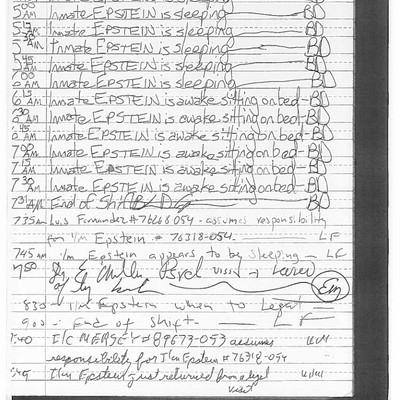 5:00 AM Inmate EPSTEIN is sleeping BD
5:15 AM Inmate EPSTEIN is sleeping BD
5:30 AM Inmate EPSTEIN is sleeping BD
5:45 AM Inmate EPSTEIN is sleeping BD
6:00 AM Inmate EPSTEIN is sleeping BD
6:15 AM Inmate EPSTEIN is awake sitting on bed - BD
6:30 AM Inmate EPSTEIN is awake sitting on bed - BD
6:45 AM Inmate EPSTEIN is awake sitting on bed - BD
7:00 AM Inmate EPSTEIN is awake sitting on bed - BD
7:15 AM Inmate EPSTEIN is awake sitting on bed - BD
7:30 AM Inmate EPSTEIN is awake sitting on bed - BD
7:31 AM End of Shift BD
735 AM Luis Fernandez #76266054 - assumes responsibility
for I/m Epstein # 76318-054. LF
745 AM I/m Epstein appears to be sleeping - LF
750 visit
830 - I/m Epstein when to Legal
900 - End of Shift - LF
I/C MERSEY # 89673-053 assumes
responsibility for I/m Epstein #76318-054
I/m Epstein just returned from legal
visit